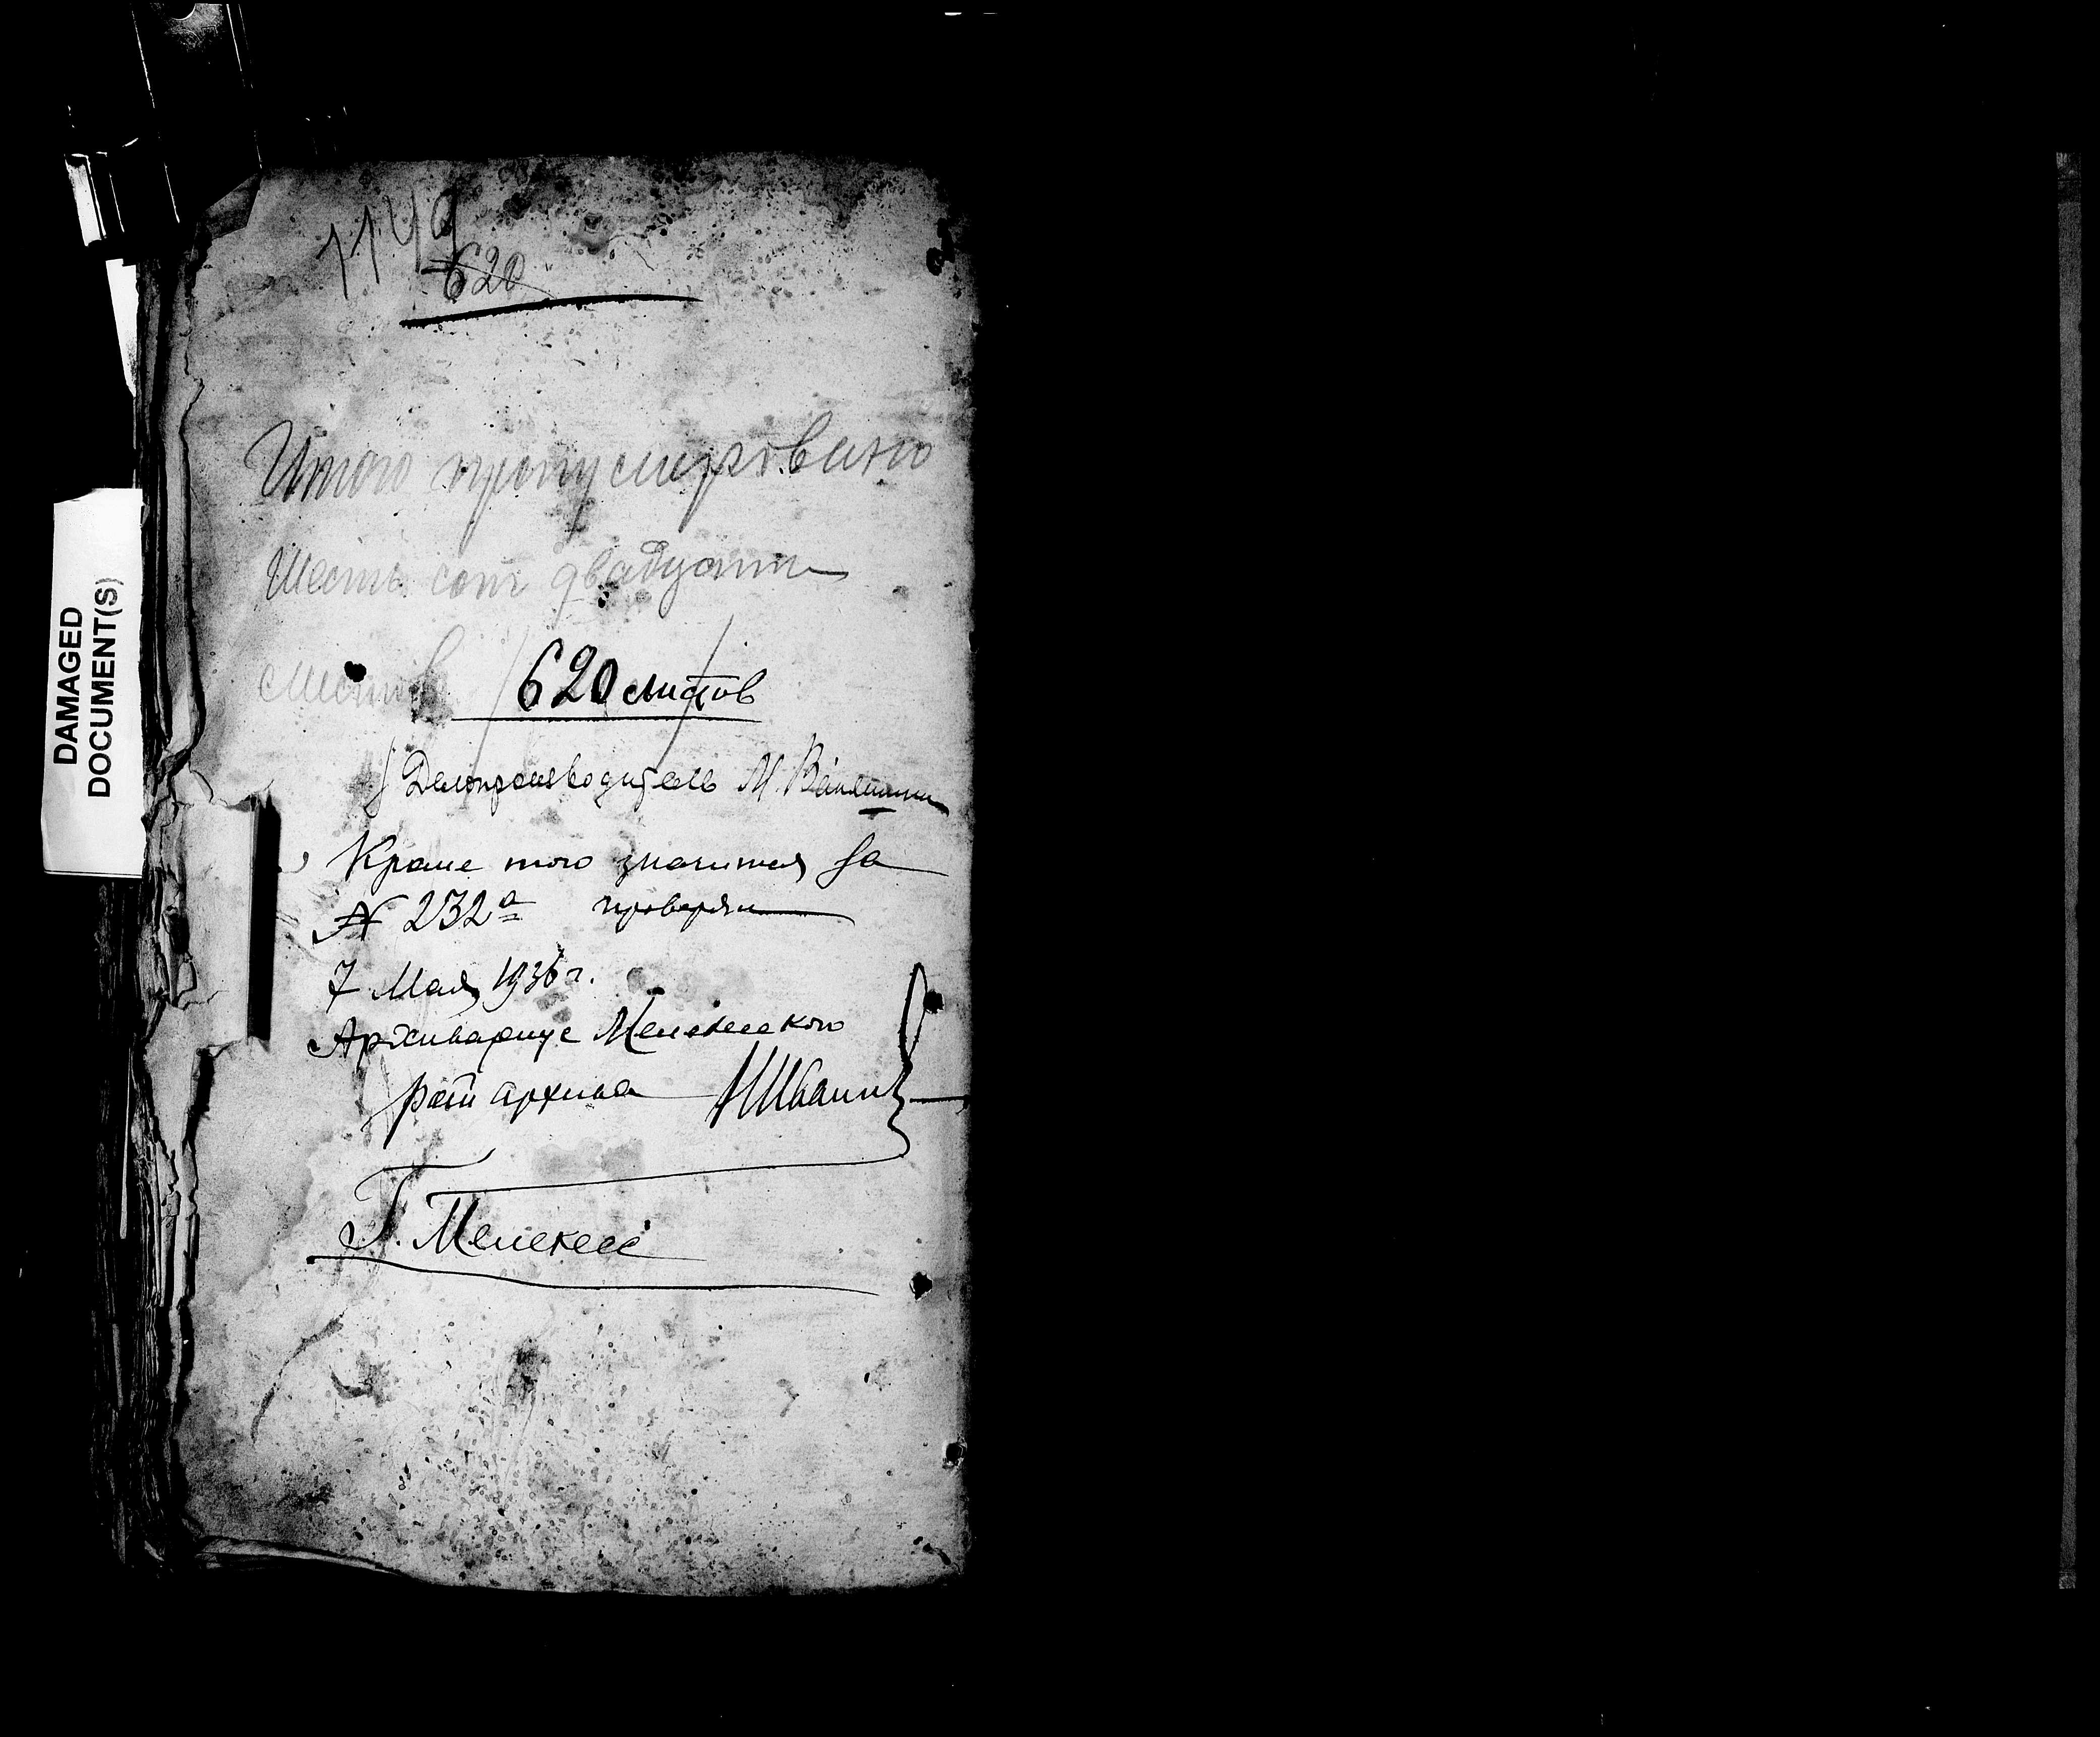 1149
620
Итого пронумеровано
Шесть сот двадцати
листов 620 листов
Делопроизводитель М.
Кроме того значится за
N 232а проверял
7 Мая 1936 г.
Архивариус Мелекесского
рай архива
Г. Мелекесс
DAMAGED
DOCUMENT(S)